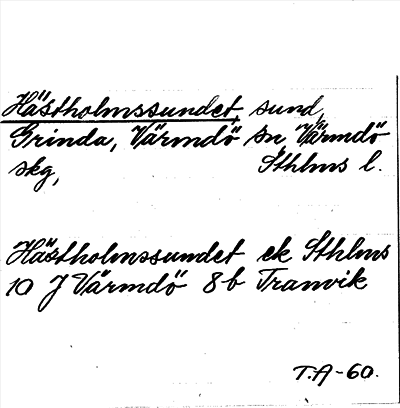 Hästholmssundet, sund,
Grinda, Värmdö sn, Värmdö
skg, Sthlms l.
Hästholmssundet ek Sthlms
10 J Värmdö 8b Tranvik
T.A-60.